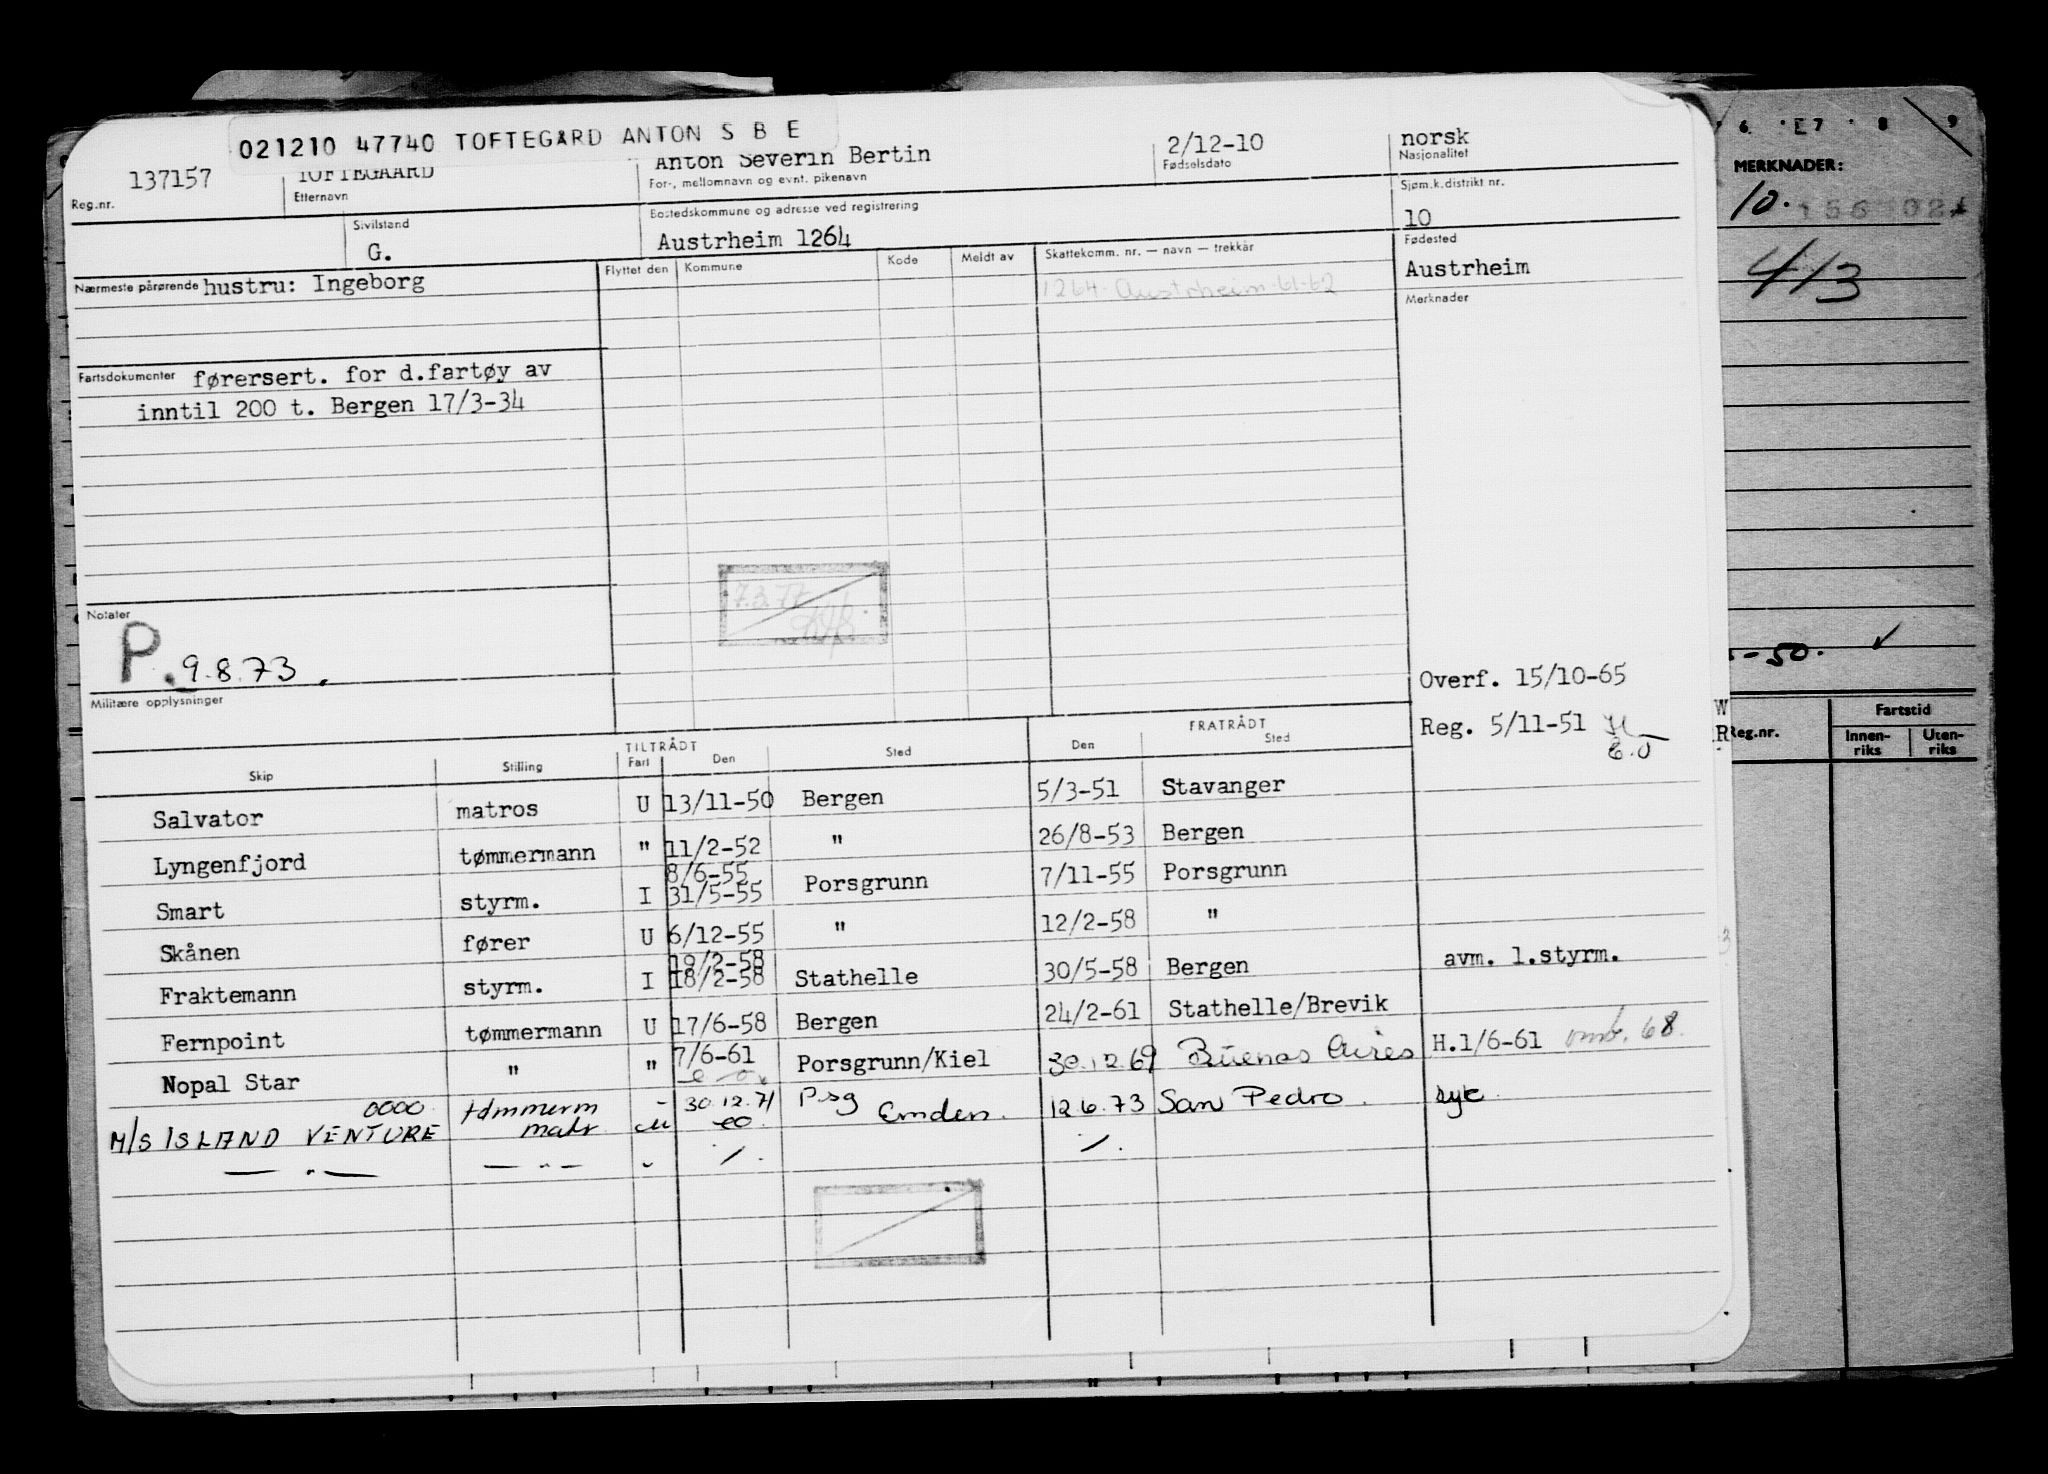 021210 47740 TOFTEGARD ANTON S B E
137157 TOFTEGAARD Anton Severin Bertin 2/12-10 norsk
Reg.nr. Etternavn For-, mellomnavn og evnt. pikenavn Fødselsdato Nasjonalitet
Sivilstand Bostedskommune og adresse ved registrering Sjøm.k.distrikt nr.
G. Austrheim 1264 10
Nærmeste pårørende hustru: Ingeborg Flyttet den Kommune Kode Meldt av Skattekomm. nr. — navn — trekkår Fødested
1264 Austrheim 61-62 Austrheim
Merknader
Fartsdokumenter førersert. for d.fartøy av
inntil 200 t. Bergen 17/3-34
Notater
P. 9.8.73.
7.3.77
Militære opplysninger
Overf. 15/10-65
Reg. 5/11-51
E.O
TILTRÅDT FRATRÅDT
Skip Stilling Fart Den Sted Den Sted
Salvator matros U 13/11-50 Bergen 5/3-51 Stavanger
Lyngenfjord tømmermann " 11/2-52 " 26/8-53 Bergen
8/6-55
Smart styrm. I 31/5-55 Porsgrunn 7/11-55 Porsgrunn
Skånen fører U 6/12-55 " 12/2-58 "
19/2-58
Fraktemann styrm. I 18/2-58 Stathelle 30/5-58 Bergen avm. 1.styrm.
Fernpoint tømmermann U 17/6-58 Bergen 24/2-61 Stathelle/Brevik
Nopal Star " " 7/6-61 Porsgrunn/Kiel 30.12.69 Buenos Aires H.1/6-61 omb. 68.
0000 tømmerm - 30.12.71 Psg
M/S ISLAND VENTURE matr U eo. Emden. 12.6.73 San Pedro. syk.
— " — — " — " /. /.
6 E7 8 9
MERKNADER:
10. 156 102
413
-50. ✓
Reg.nr. Fartstid
Innen-riks Uten-riks